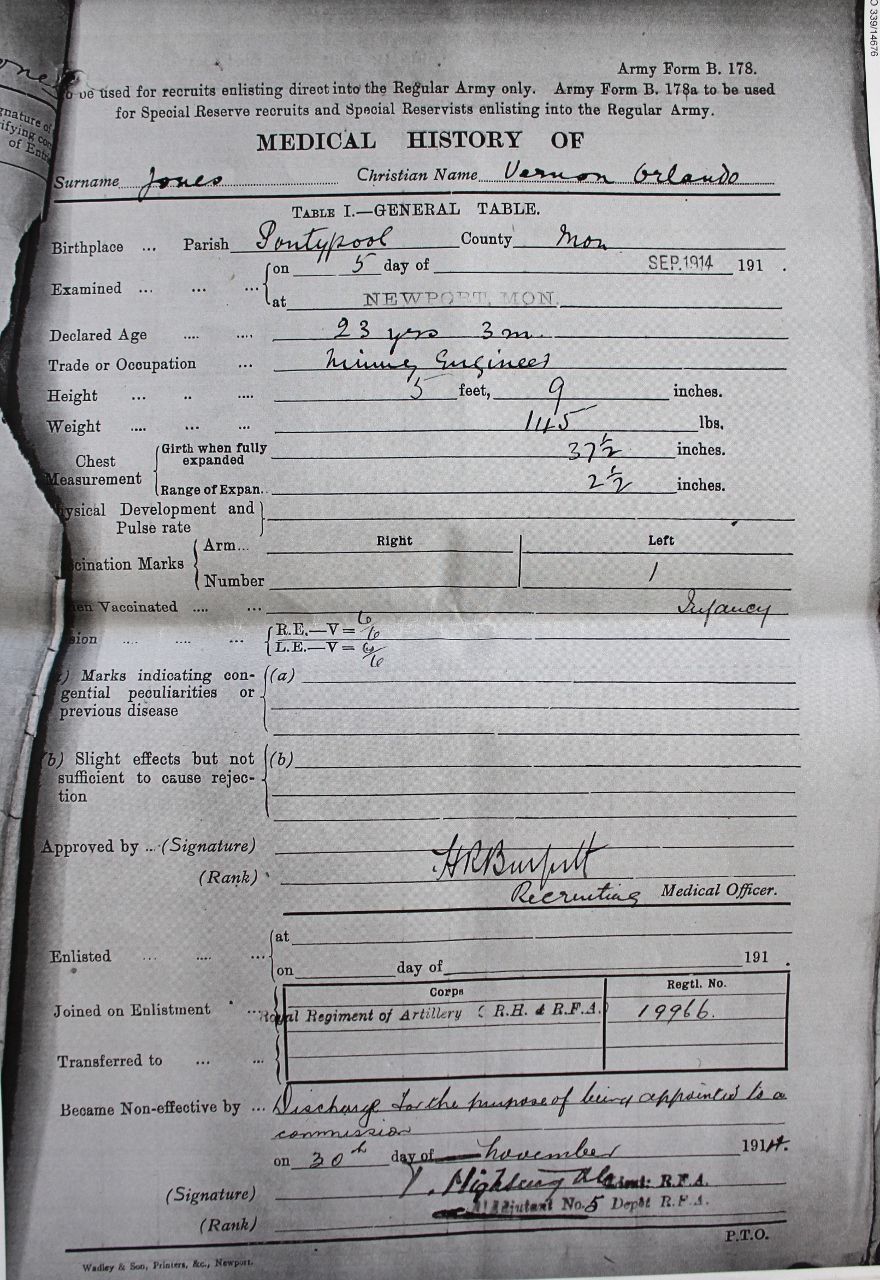 O 339/14676
Army Form B. 178.
be used for recruits enlisting direct into the Regular Army only. Army Form B. 178a to be used
for Special Reserve recruits and Special Reservists enlisting into the Regular Army.
MEDICAL HISTORY OF
Surname Jones Christian Name Vernon Orlando
TABLE I.—GENERAL TABLE.
Birthplace ... Parish Pontypool County Mon
Examined ... ... ... on 5 day of SEP. 1914 191 .
at NEWPORT, MON.
Declared Age .... .... 23 yrs 3 m.
Trade or Occupation ... Mining Engineer
Height ... .. .... 5 feet, 9 inches.
Weight .... ... ... 145 lbs.
Chest Measurement Girth when fully expanded 37½ inches.
Range of Expan.. 2½ inches.
ysical Development and
Pulse rate
Right Left
cination Marks Arm...
Number 1
en Vaccinated .... ... Infancy
sion .... .... ... R.E.—V = 6/6
L.E.—V = 6/6
) Marks indicating con- (a)
gential peculiarities or
previous disease
(b) Slight effects but not (b)
sufficient to cause rejec-
tion
Approved by ... (Signature)
(Rank)
Recruiting Medical Officer.
Enlisted ... .... ... at
on day of 191 .
Corps Regtl. No.
Joined on Enlistment ... Royal Regiment of Artillery ( R.H. & R.F.A.) 19966.
Transferred to ... ...
Became Non-effective by ... Discharge for the purpose of being appointed to a
commission
on 30th day of November 1914.
(Signature) R.F.A.
(Rank) Adjutant No. 5 Depôt R.F.A.
P.T.O.
Wadley & Son, Printers, &c., Newport.